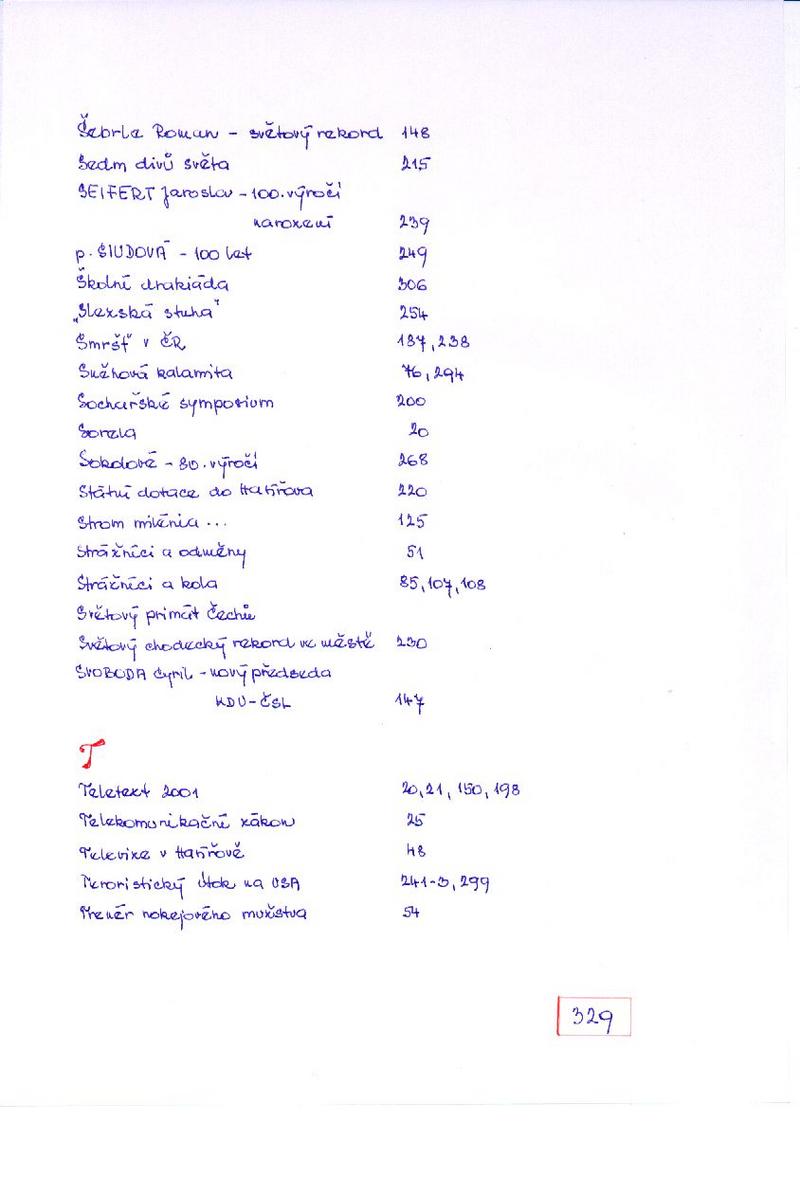 Šebrle Roman - světový rekord 148
Sedm divů světa 215
SEIFERT Jaroslav - 100. výročí
narození 239
p. SIUDOVÁ - 100 let 249
Školní drakiáda 306
„Slezská stuha" 254
Smršť v ČR 187, 238
Sněhová kalamita 76, 294
Sochařské symposium 200
Sorela 20
Sokolové - 80. výročí 268
Státní dotace do Havířova 220
Strom milénia ... 125
Strážníci a odměny 51
Strážníci a kola 85, 107, 108
Světový primát Čechů
Světový chodecký rekord ve městě 230
SVOBODA Cyril - nový předseda
KDU-ČSL 147
T
Teletext 2001 20, 21, 150, 198
Telekomunikační zákon 25
Televize v Havířově 48
Teroristický útok na USA 241-3, 299
Trenér hokejového mužstva 54
329